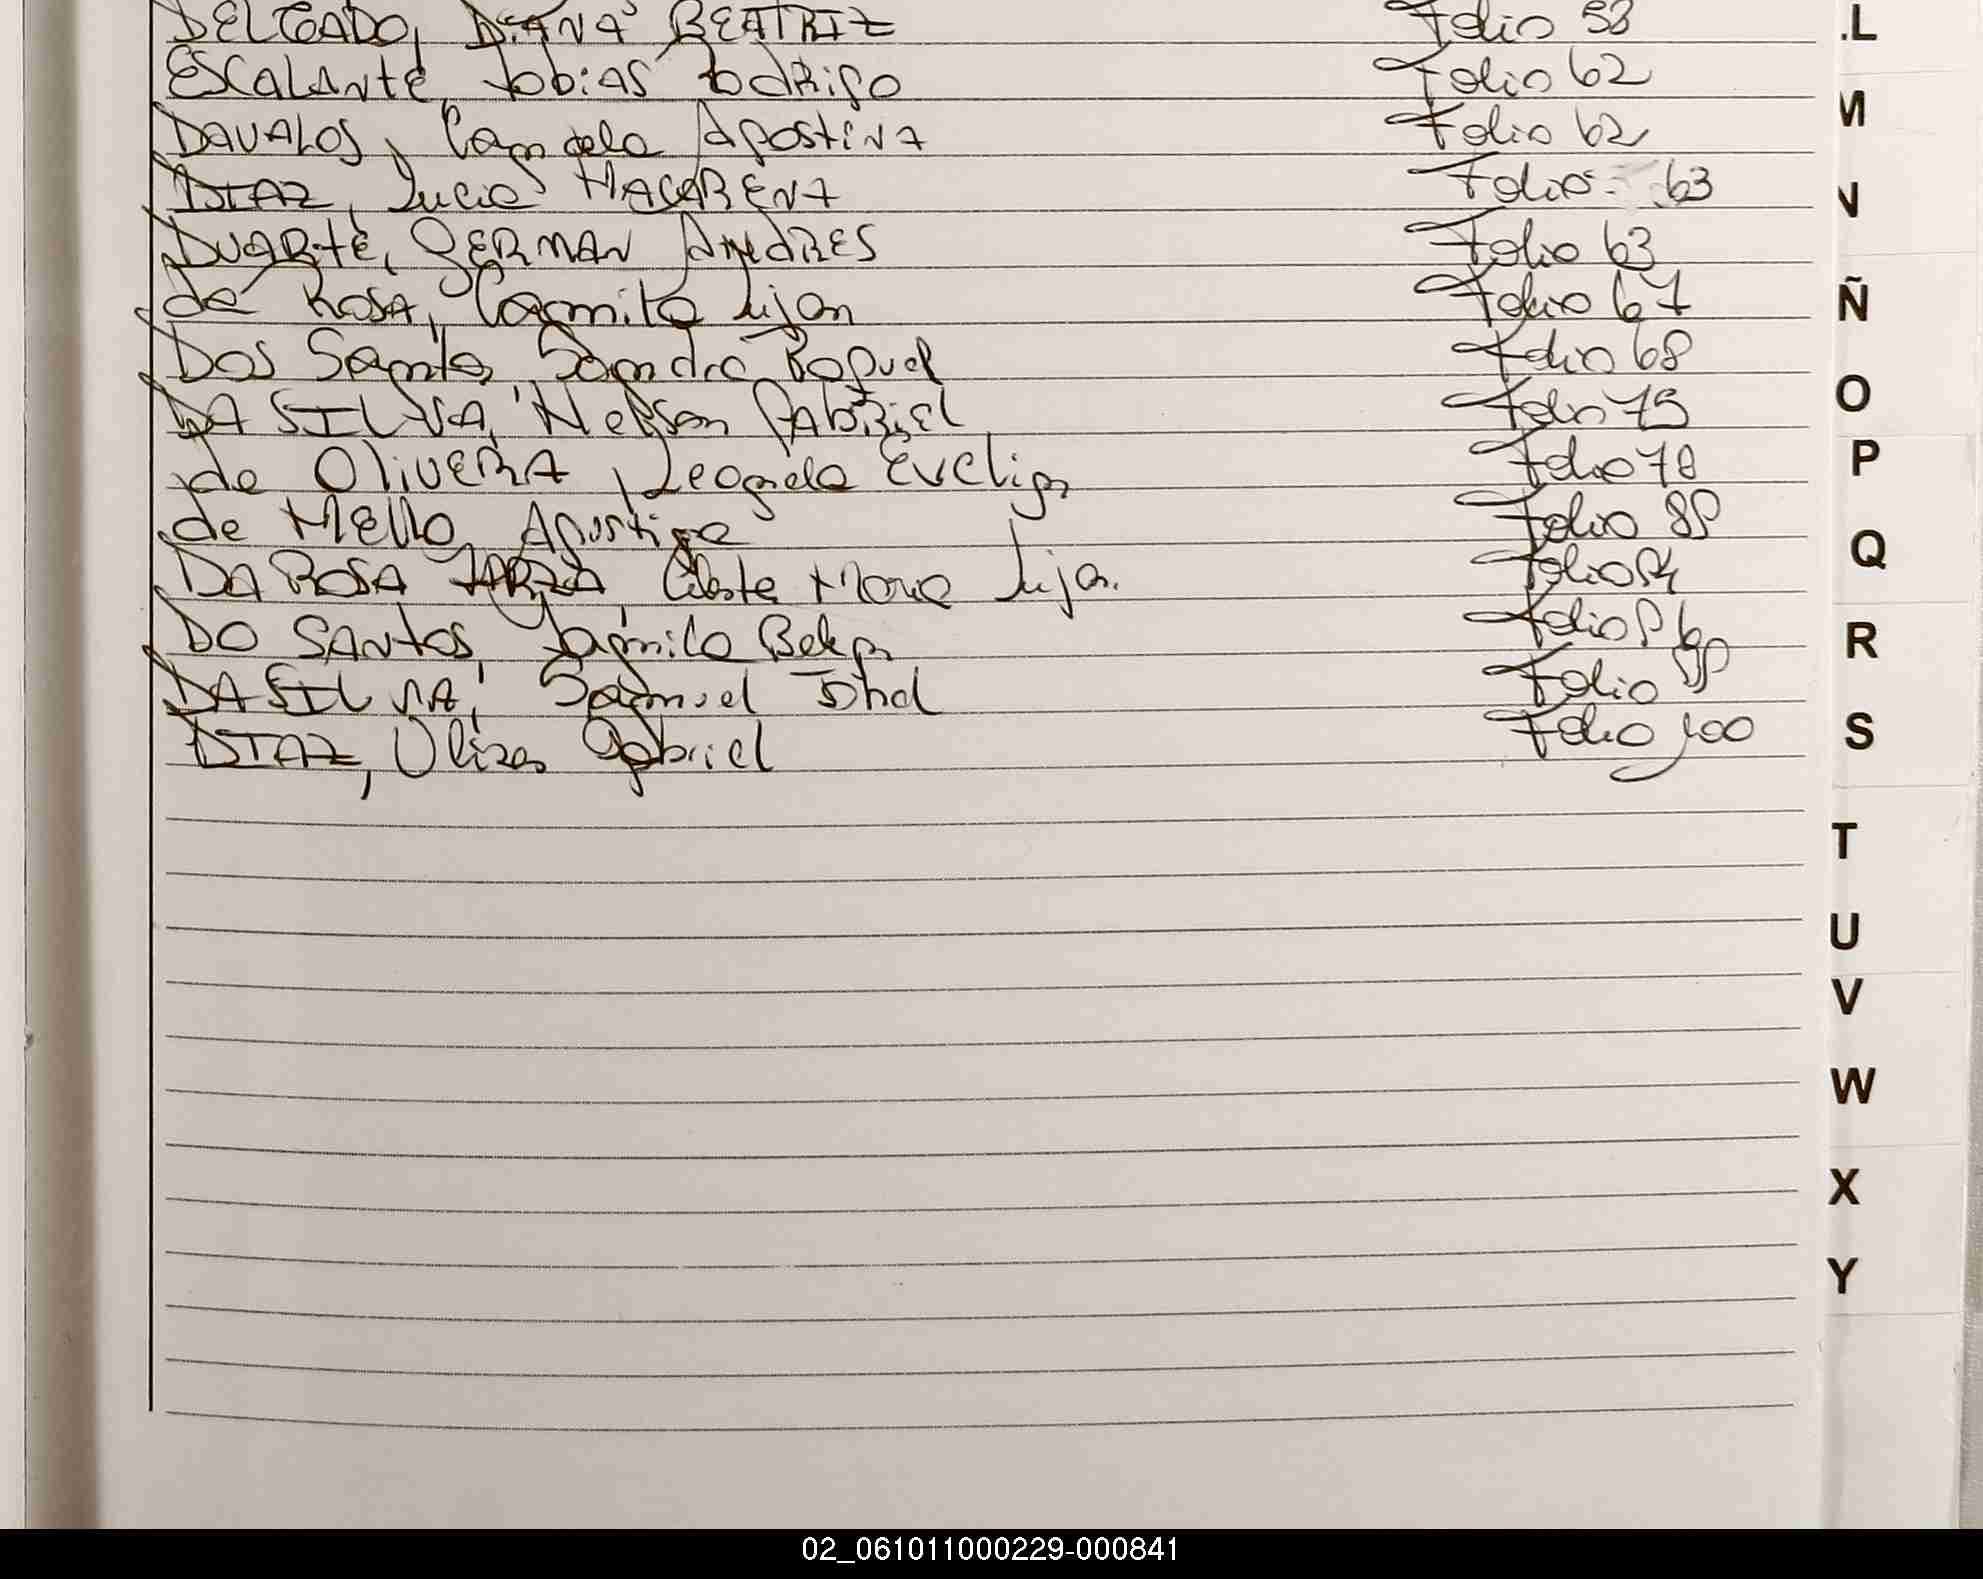 DELGADO, DIANA BEATRIZ Folio 58
ESCALANTE, Tobias Rodrigo Folio 62
DAVALOS, Candela Agostina Folio 62
DIAZ, Lucia MACARENA Folios 63
DUARTE, GERMAN ANDRES Folio 63
de ROSA, Camila Lujan Folio 67
DOS Santos, Sandra Raquel Folio 68
DA SILVA, Nelson GABRIEL Folio 75
de OLIVERA, Leonela Evelign Folio 78
de MELLO, Agustina Folio 89
DA ROSA Celeste Maria Lujan. Folio 94
DO SANTOS, Yamila Belen Folio 96
DA SILVA, Samuel Folio 99
DIAZ, Ulises Gabriel Folio 100
L
M
N
Ñ
O
P
Q
R
S
T
U
V
W
X
Y
02_061011000229-000841